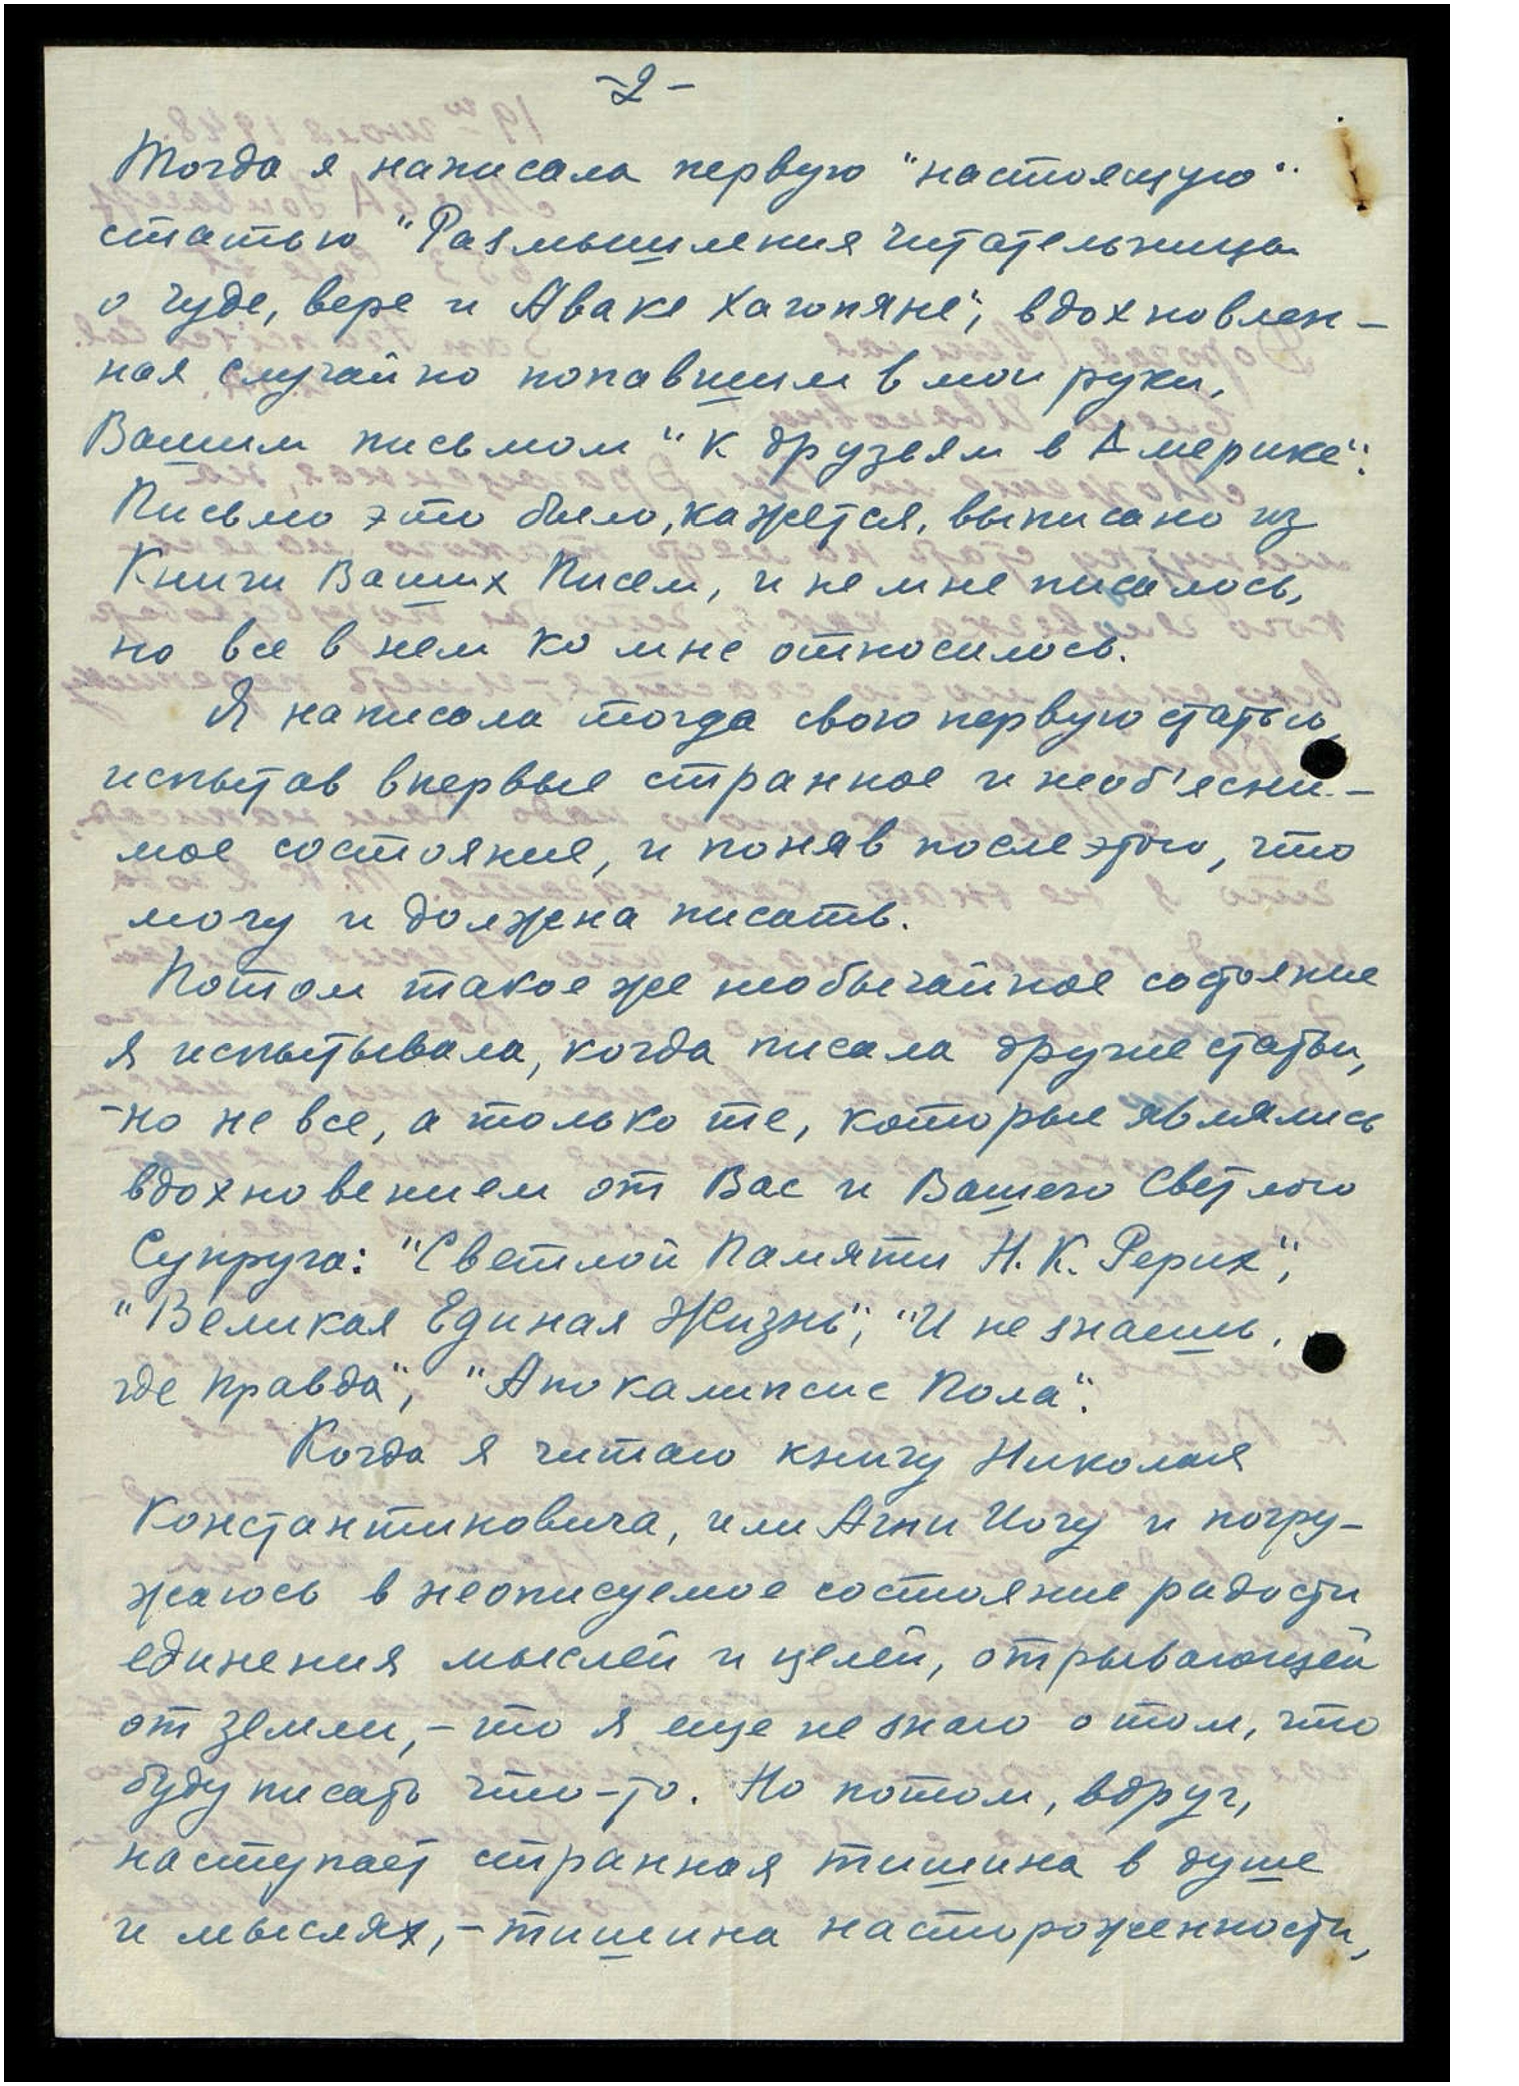 -2-
Тогда я написала первую "настоящую"
статью "Размышления читательницы
о чуде, вере и Аваке Хагопяне", вдохновлен-
ная случайно попавшим в мои руки,
Вашим письмом "К друзьям в Америке".
Письмо это было, кажется, выписано из
Книги Ваших Писем, и не мне писалось,
но все в нем ко мне относилось.
Я написала тогда свою первую статью,
испытав впервые странное и необ'ясни-
мое состояние, и поняв после этого, что
могу и должна писать.
Потом такое же необычайное состояние
я испытывала, когда писала другие статьи,
-но не все, а только те, которые являлись
вдохновением от Вас и Вашего Светлого
Супруга: "Светлой Памяти Н. К. Рерих",
"Великая Единая Жизнь", "И не знаешь,
где Правда", "Апокалипсис Пола".
Когда я читаю книгу Николая
Константиновича, или Агни Йогу и погру-
жаюсь в неописуемое состояние радости
единения мыслей и целей, отрывающей
от земли, - то я еще не знаю о том, что
буду писать что-то. Но потом, вдруг,
наступает странная тишина в душе
и мыслях, - тишина настороженности,